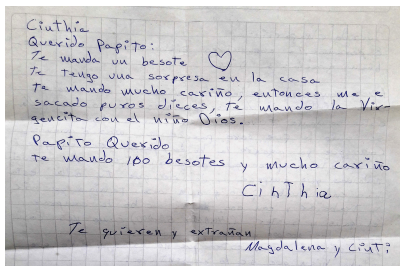 Cinthia
Querido Papito:
Te manda un besote
Te Tengo una sorpresa en la casa
te mando mucho cariño, entonces me e
sacado puros dieces, te mando la Vir-
gencita con el niño Dios.
Papito Querido
te mando 100 besotes y mucho cariño
CinThia
Te quieren y extrañan
Magdalena y Cinti